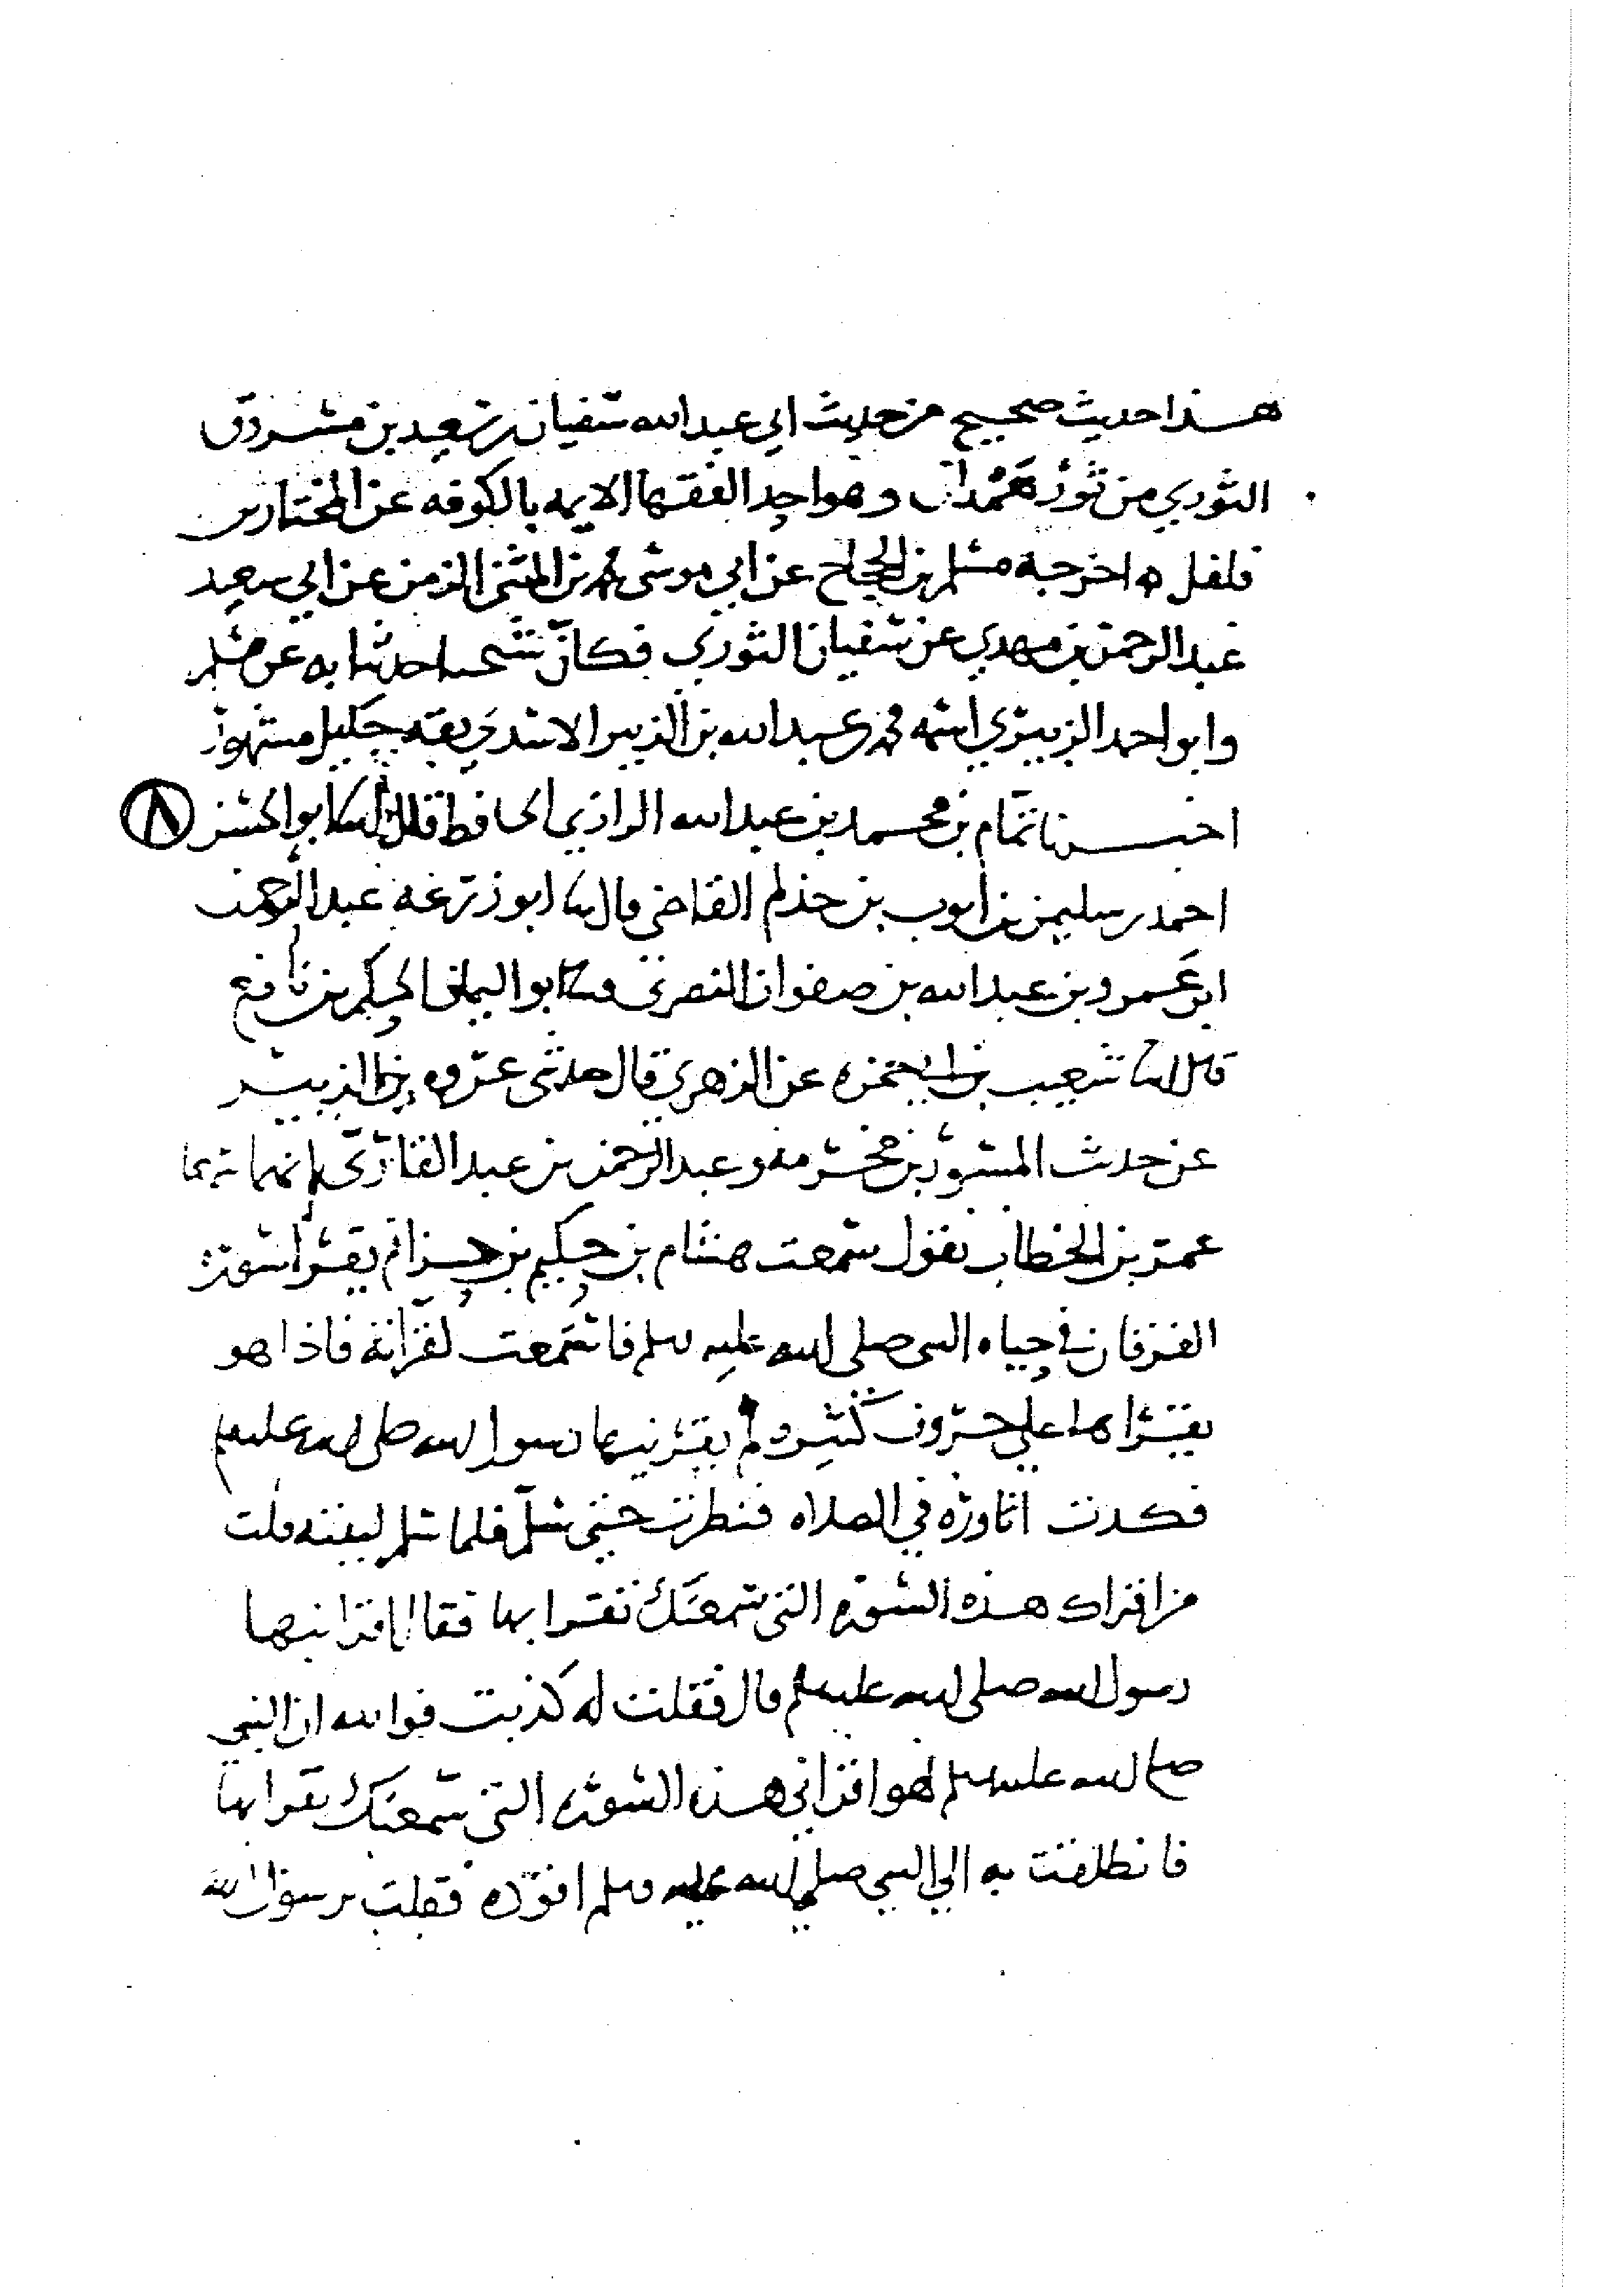 هذا حديث صحيح من حديث ابي عبد الله سفيان بن سعيد بن مسروق
الثوري من ثور همدان وهو احد الفقها الايمه بالكوفه عن المختار بن
فلفل ه اخرجه مسلم بن الحجاج عن ابي موسى محمد بن المثنى الزمن عن ابي سعيد
عبد الرحمن بن مهدي عن سفيان الثوري فكان شيخنا حدثنا به عن مسلم
وابو احمد الزبيري اسمه محمد بن عبد الله بن الزبير الاسدي ثقه جليل مشهور
اخبرنا تمام بن محمد بن عبد الله الرازي الحافظ قال ثنا ابو الحسن ٨
احمد بن سليمن بن ايوب بن حذلم القاضي قال ثنا ابو زرعه عبد الرحمن
ابن عمرو بن عبد الله بن صفوان النصري ثنا ابو اليمان الحكم بن نافع
قال انا شعيب بن ابي حمزه عن الزهري قال حدثني عروه بن الزبير
عن حديث المسور بن مخرمه وعبد الرحمن بن عبد القاري انهما سمعا
عمر بن الخطاب يقول سمعت هشام بن حكيم بن حزام يقرا سوره
الفرقان في حياه النبي صلى الله عليه وسلم فاستمعت لقرانه فاذا هو
يقراها على حروف كثيره لم يقرينيها رسول الله صلى الله عليه وسلم
فكدت اثاوره في الصلاه فنظرت حتى سلم فلما سلم لببته قلت
من اقراك هذه السوره التي سمعتك تقرا بها فقال اقرانيها
رسول الله صلى الله عليه وسلم قال فقلت له كذبت فوالله ان النبي
صلى الله عليه وسلم لهو اقراني هذه السوره التي سمعتك تقرا بها
فانطلقت به الى النبي صلى الله عليه وسلم اقوده فقلت يرسول الله